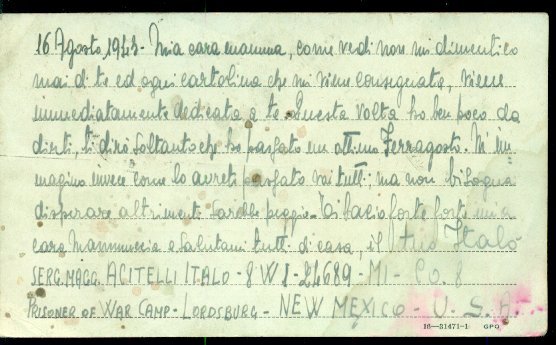 16 Agosto, 1943- Mia cara mamma, come vedi non mi dimentico
mai di te ed ogni cartolina che mi viene consegnata, viene
immediatamente dedicata a te. Questa volta ho ben poco da
dirti, ti dirò soltanto che ho passato un ottimo Ferragosto. M'im=
magino invece come lo avrete passato voi tutti, ma non bisogna
disperare altrimenti sarebbe peggio- Ti bacio forte forte mia
cara mammuccia e salutami tutti di casa, il tuo Italo
SERG. MAGG. ACITELLI ITALO - 8 W I - 24689 - MI - CO. 8
PRISONER OF WAR CAMP - LORDSBURG - NEW MEXICO - U. S. A.
16—31471-1 GPO